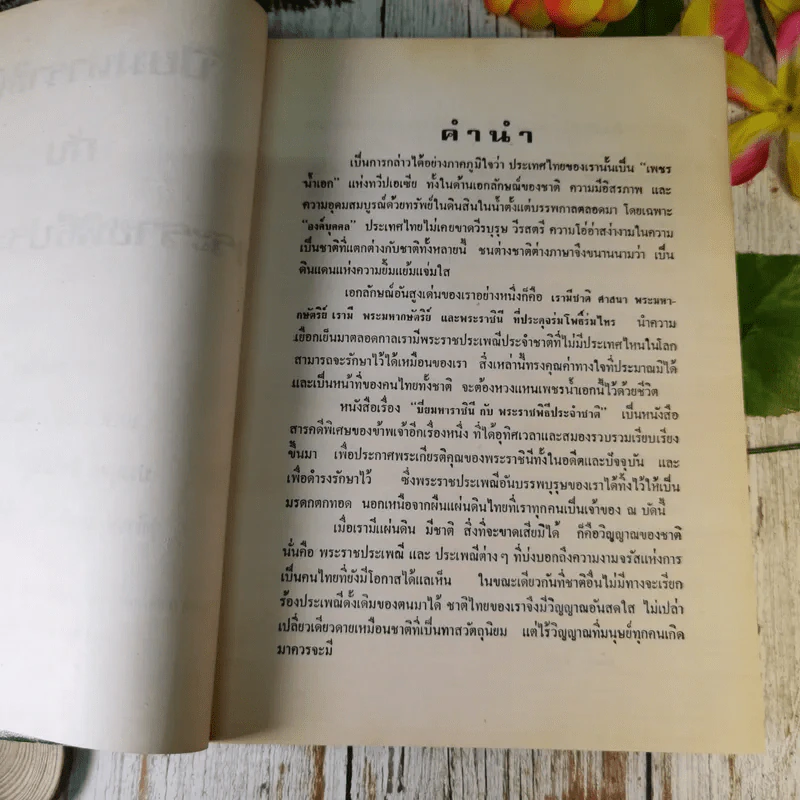 คำนำ
เป็นการกล่าวได้อย่างภาคภูมิใจว่า ประเทศไทยของเรานั้นเป็น "เพชร
น้ำเอก" แห่งทวีปเอเซีย ทั้งในด้านเอกลักษณ์ของชาติ ความมีอิสรภาพ และ
ความอุดมสมบูรณ์ด้วยทรัพย์ในดินสินในน้ำตั้งแต่บรรพกาลตลอดมา โดยเฉพาะ
"องค์บุคคล" ประเทศไทยไม่เคยขาดวีรบุรุษ วีรสตรี ความโอ่อ่าสง่างามในความ
เป็นชาติที่แตกต่างกับชาติทั้งหลายนี้ ชนต่างชาติต่างภาษาจึงขนานนามว่า เป็น
ดินแดนแห่งความยิ้มแย้มแจ่มใส
เอกลักษณ์อันสูงเด่นของเราอย่างหนึ่งก็คือ เรามีชาติ ศาสนา พระมหา-
กษัตริย์ เรามี พระมหากษัตริย์ และพระราชินี ที่ประดุจร่มโพธิ์ร่มไทร นำความ
เยือกเย็นมาตลอดกาลเรามีพระราชประเพณีประจำชาติที่ไม่มีประเทศไหนในโลก
สามารถจะรักษาไว้ได้เหมือนของเรา สิ่งเหล่านี้ทรงคุณค่าทางใจที่ประมาณมิได้
และเป็นหน้าที่ของคนไทยทั้งชาติ จะต้องหวงแหนเพชรน้ำเอกนี้ไว้ด้วยชีวิต
หนังสือเรื่อง "ปิยมหาราชินี กับ พระราชพิธีประจำชาติ" เป็นหนังสือ
สารคดีพิเศษของข้าพเจ้าอีกเรื่องหนึ่ง ที่ได้อุทิศเวลาและสมองรวบรวมเรียบเรียง
ขึ้นมา เพื่อประกาศพระเกียรติคุณของพระราชินีทั้งในอดีตและปัจจุบัน และ
เพื่อดำรงรักษาไว้ ซึ่งพระราชประเพณีอันบรรพบุรุษของเราได้ทิ้งไว้ให้เป็น
มรดกตกทอด นอกเหนือจากผืนแผ่นดินไทยที่เราทุกคนเป็นเจ้าของ ณ บัดนี้
เมื่อเรามีแผ่นดิน มีชาติ สิ่งที่จะขาดเสียมิได้ ก็คือวิญญาณของชาติ
นั่นคือ พระราชประเพณี และ ประเพณีต่าง ๆ ที่บ่งบอกถึงความงามจรัสแห่งการ
เป็นคนไทยที่ยังมีโอกาสได้แลเห็น ในขณะเดียวกันที่ชาติอื่นไม่มีทางจะเรียก
ร้องประเพณีดั้งเดิมของตนมาได้ ชาติไทยของเราจึงมีวิญญาณอันสดใส ไม่เปล่า
เปลี่ยวเดียวดายเหมือนชาติที่เป็นทาสวัตถุนิยม แต่ไร้วิญญาณที่มนุษย์ทุกคนเกิด
มาควรจะมี